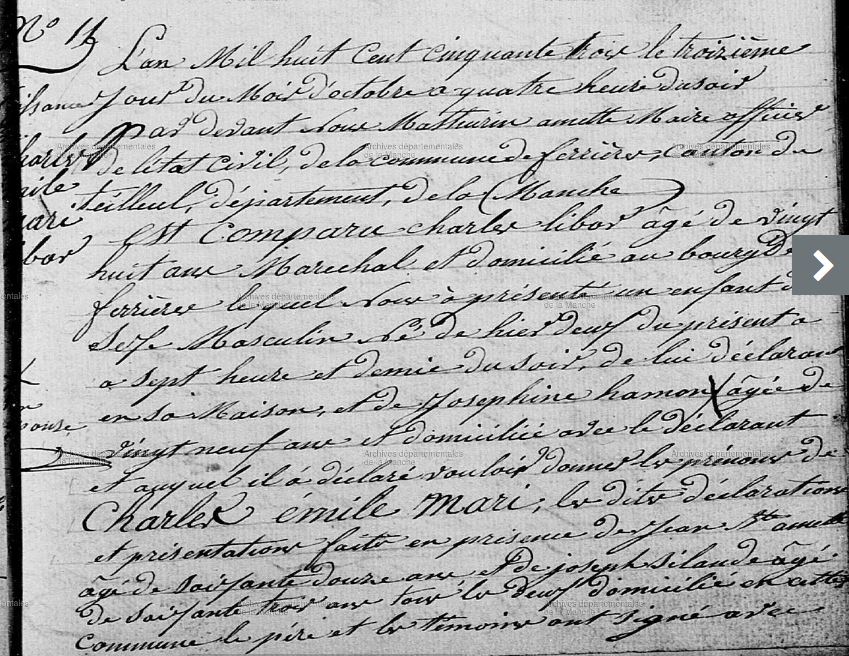 N° 11
L'an Mil huit Cent cinquante trois le troizième
Jour du Mois d'octobre a quatre heure du soir
Par devant Nous Mathurin amette Maire officier
De l'état civil, de la commune de ferrières, canton du
teilleul, département, de la Manche
Est Comparu charles libor âgé de vingt
huit ans Marechal et domicilié au bourg de
ferrières lequel Nous à présenté un enfant d
Sexe Masculin Né de hier deux du présent a
a sept heure et demie du soir, de lui déclarant
en sa Maison, et de Josephine hamon âgée de
vingt neuf ans et domiciliée avec le déclarant
et auquel il à déclaré vouloir donner les prénoms de
Charles émile Mari, les dites déclarations
et présentations faite en présence de Jean Bte amette
âgé de soixante douze ans et de joseph silande âgé
de soixante trois ans tous les deux domicilié en cette
Commune le père et les témoins ont signé avec
isance
harles
mile
mari
ibor
pouse
Archives départementales
de la Manche